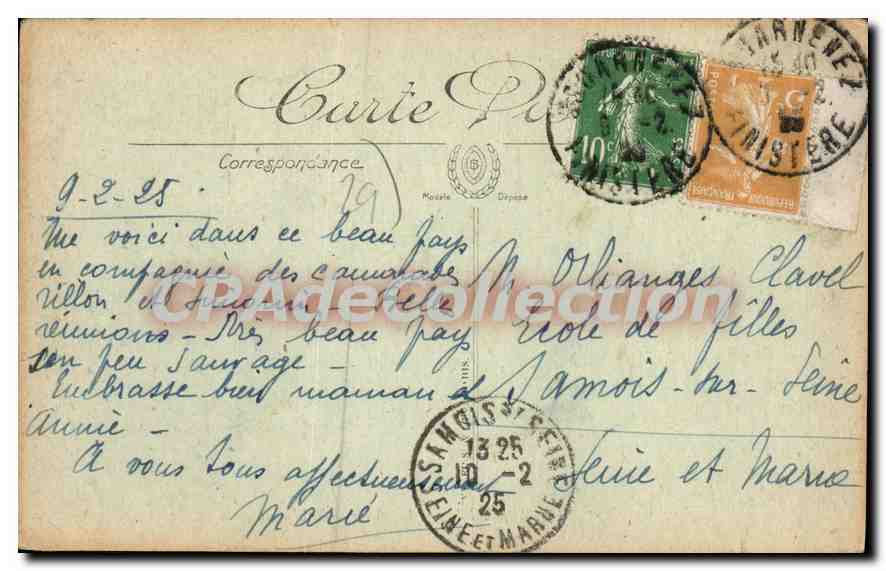 Carte
Correspondance
Modèle Déposé
29
9-2-25.
Me voici dans ce beau pays
en compagnie des camarades
Villon et Simonin - Belle
réunions - Très beau pays
un peu sauvage -
Embrasse bien maman et
Annie -
A vous tous affectueusement
Marie
M Orlianges Clavel
Ecole de filles
Samois-sur-Seine
Seine et Marne
10c
POSTES
REPUBLIQUE FRANÇAISE
DOUARNENEZ
FINISTÈRE
DOUARNENEZ
FINISTÈRE
SAMOIS S/ SEINE
13 25
10 -2
25
SEINE ET MARNE
CPAdeCollection